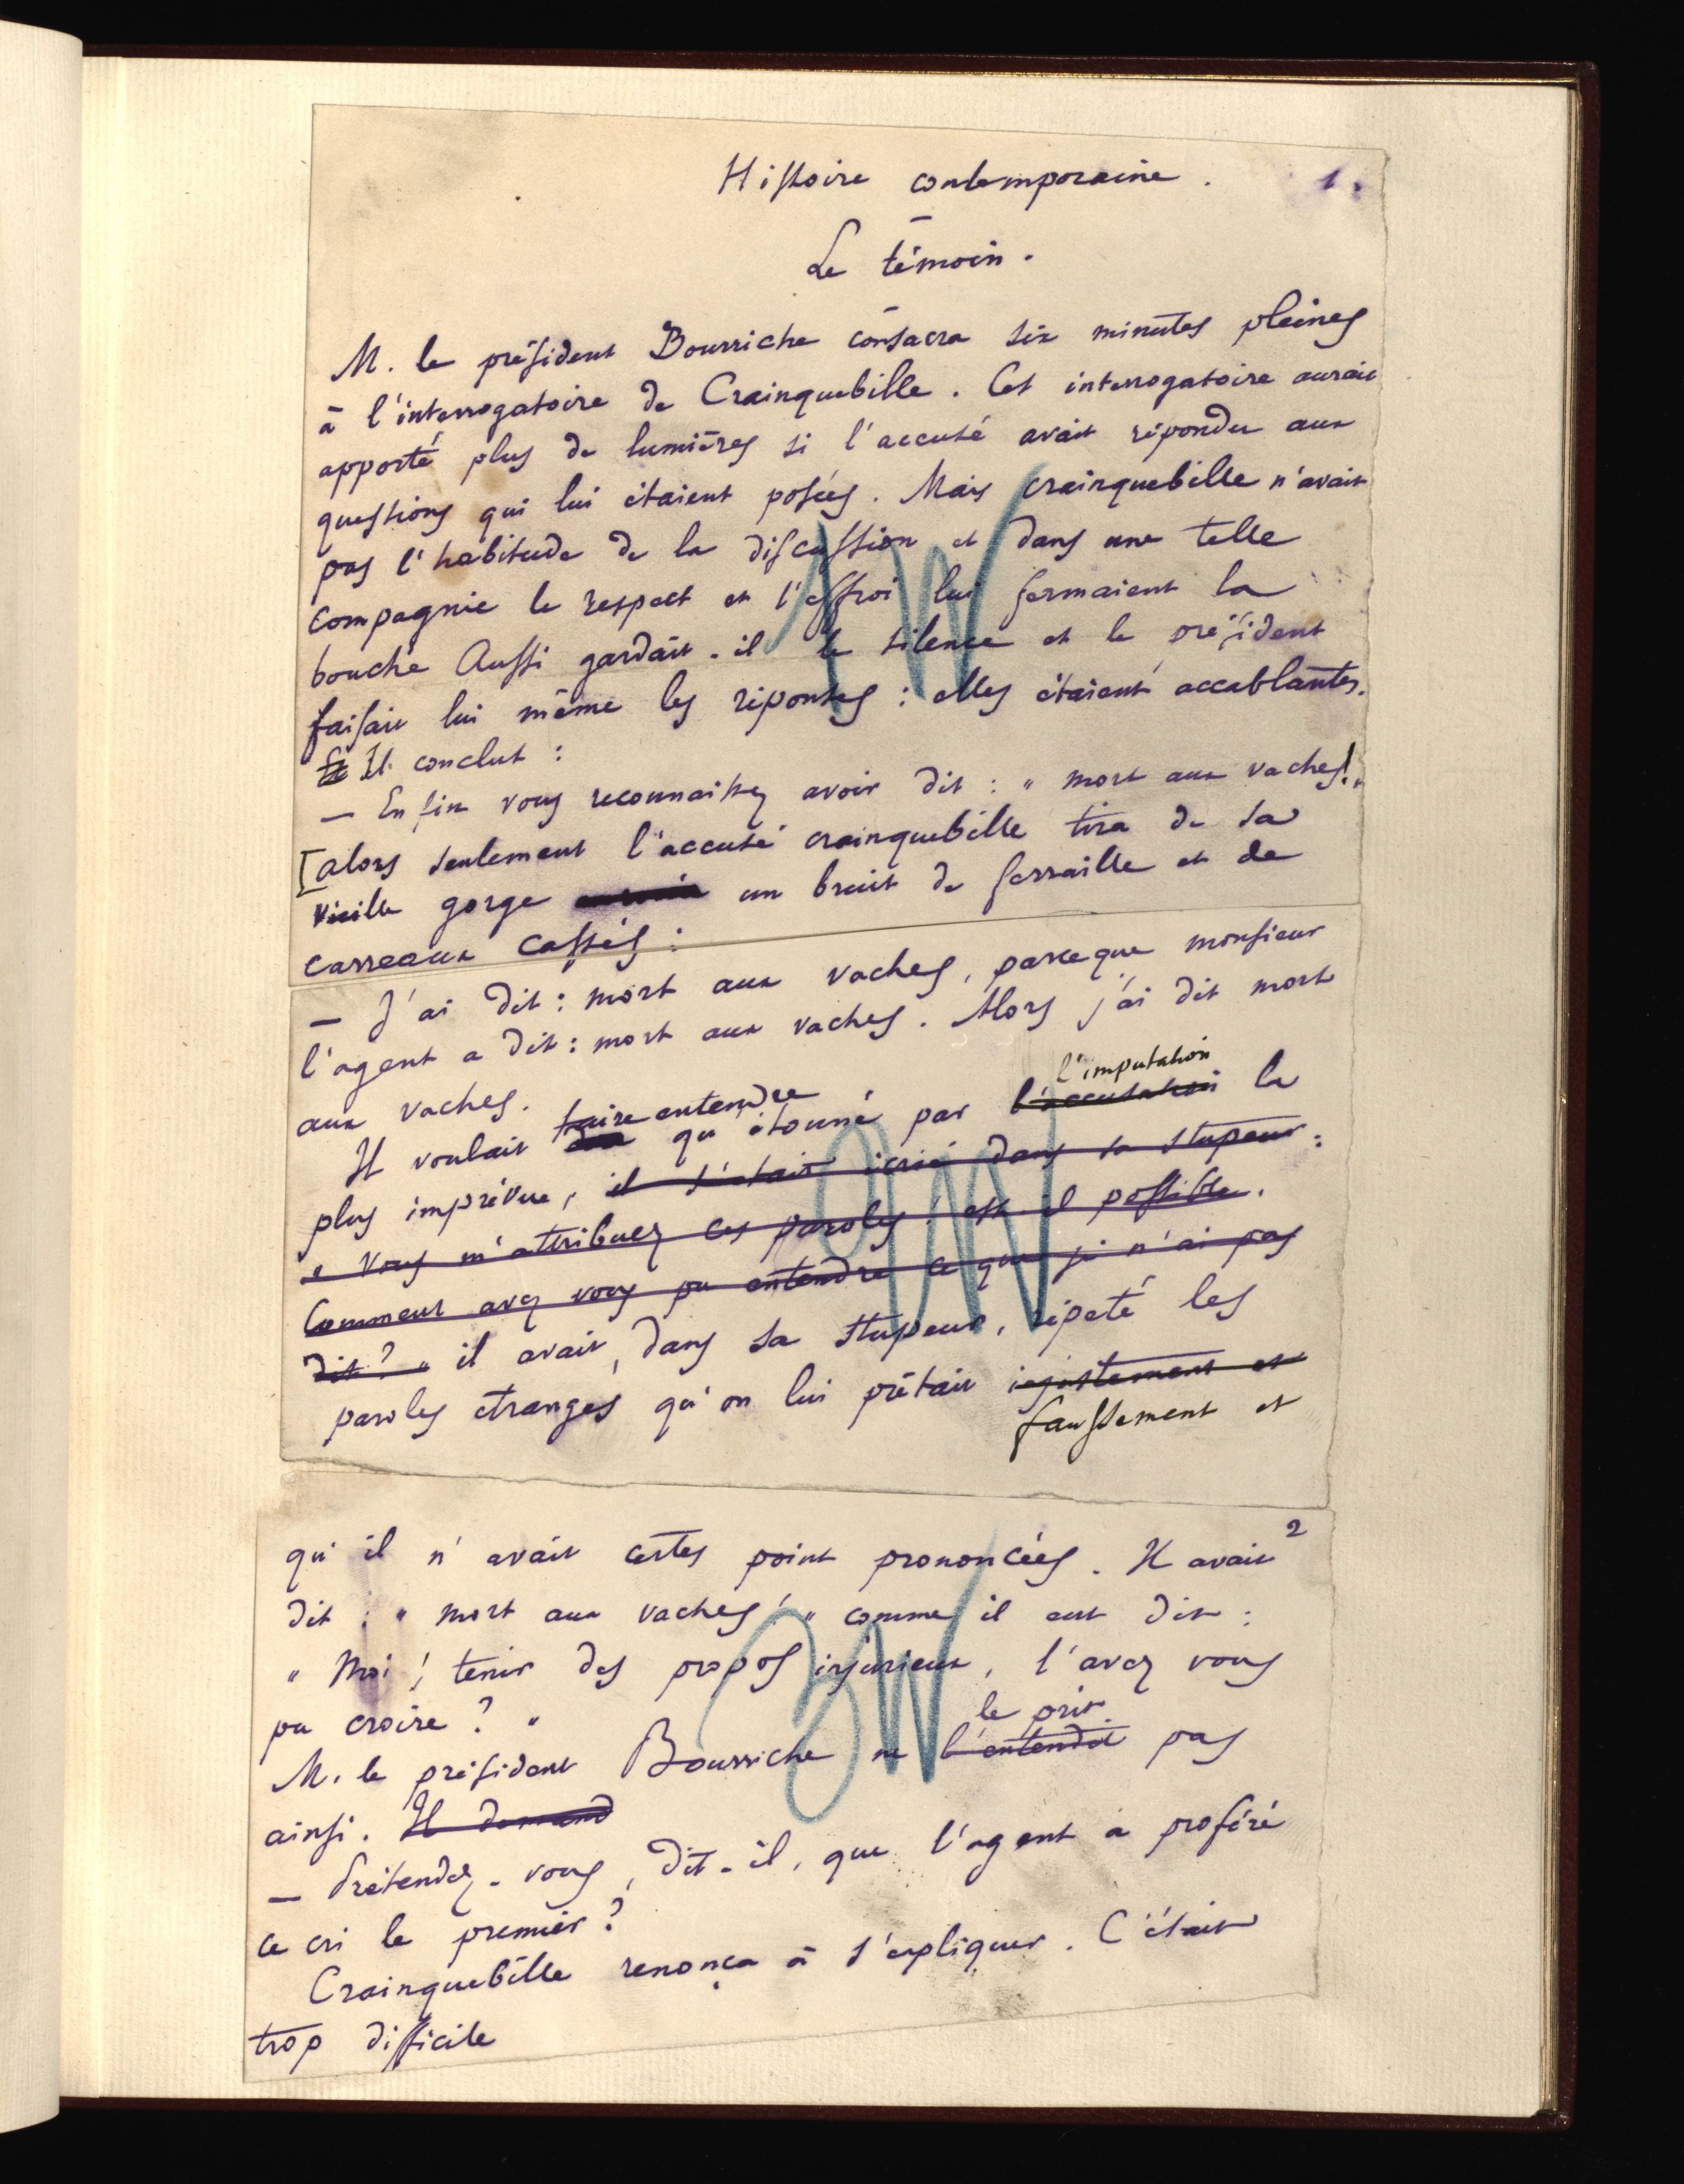 Histoire contemporaine. 1.
Le témoin.
M. le président Bourriche consacra six minutes pleines
à l'interrogatoire de Crainquebille. Cet interrogatoire aurait
apporté plus de lumières si l'accusé avait répondu aux
questions qui lui étaient posées. Mais crainquebille n'avait
pas l'habitude de la discussion et dans une telle
compagnie le respect et l'effroi lui fermaient la
bouche Aussi gardait-il le silence et le président
faisait lui même les réponses : elles étaient accablantes.
Il conclut :
— Enfin vous reconnaissez avoir dit : " mort aux vaches!"
[alors seulement l'accusé crainquebille tira de sa
vieille gorge un bruit de ferraille et de
carreaux cassés :
— J'ai dit : mort aux vaches, parceque monsieur
l'agent a dit : mort aux vaches. Alors j'ai dit mort
aux vaches.
l'imputation
faire entendre
Il voulait qu'étonné par l'accusation la
plus imprévue, il s'était écrié dans sa stupeur :
" Vous m'attribuez ces paroles ! est-il possible.
Comment avez vous pu entendre ce que je n'ai pas
dit ? " il avait, dans sa stupeur, répeté les
paroles étranges qu'on lui prêtait injustement et
faussement et
2
qu'il n'avait certes point prononcées. Il avait
dit : " mort aux vaches ! " comme il eut dit :
" Moi ! tenir des propos injurieux, l'avez vous
pu croire ? "
le prit
M. le président Bourriche ne l'entendit pas
ainsi. Il demand
— Prétendez-vous, dit-il, que l'agent a proféré
ce cri le premier ?
Crainquebille renonça à s'expliquer. C'était
trop difficile